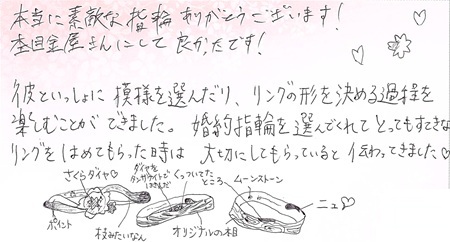 本当に素敵な指輪ありがとうございます!
杢目金屋さんにして良かったです!
彼といっしょに模様を選んだり、リングの形を決める過程を
楽しむことができました。婚約指輪を選んでくれてとってもすてきな
リングをはめてもらった時は大切にしてもらっていると伝わってきました♡
さくらダイヤ♡
ダイヤを
タンザナイトで
はさんだ
くっついてた
ところ
ムーンストーン
ポイント
枝みたいなん
オリジナルの木目